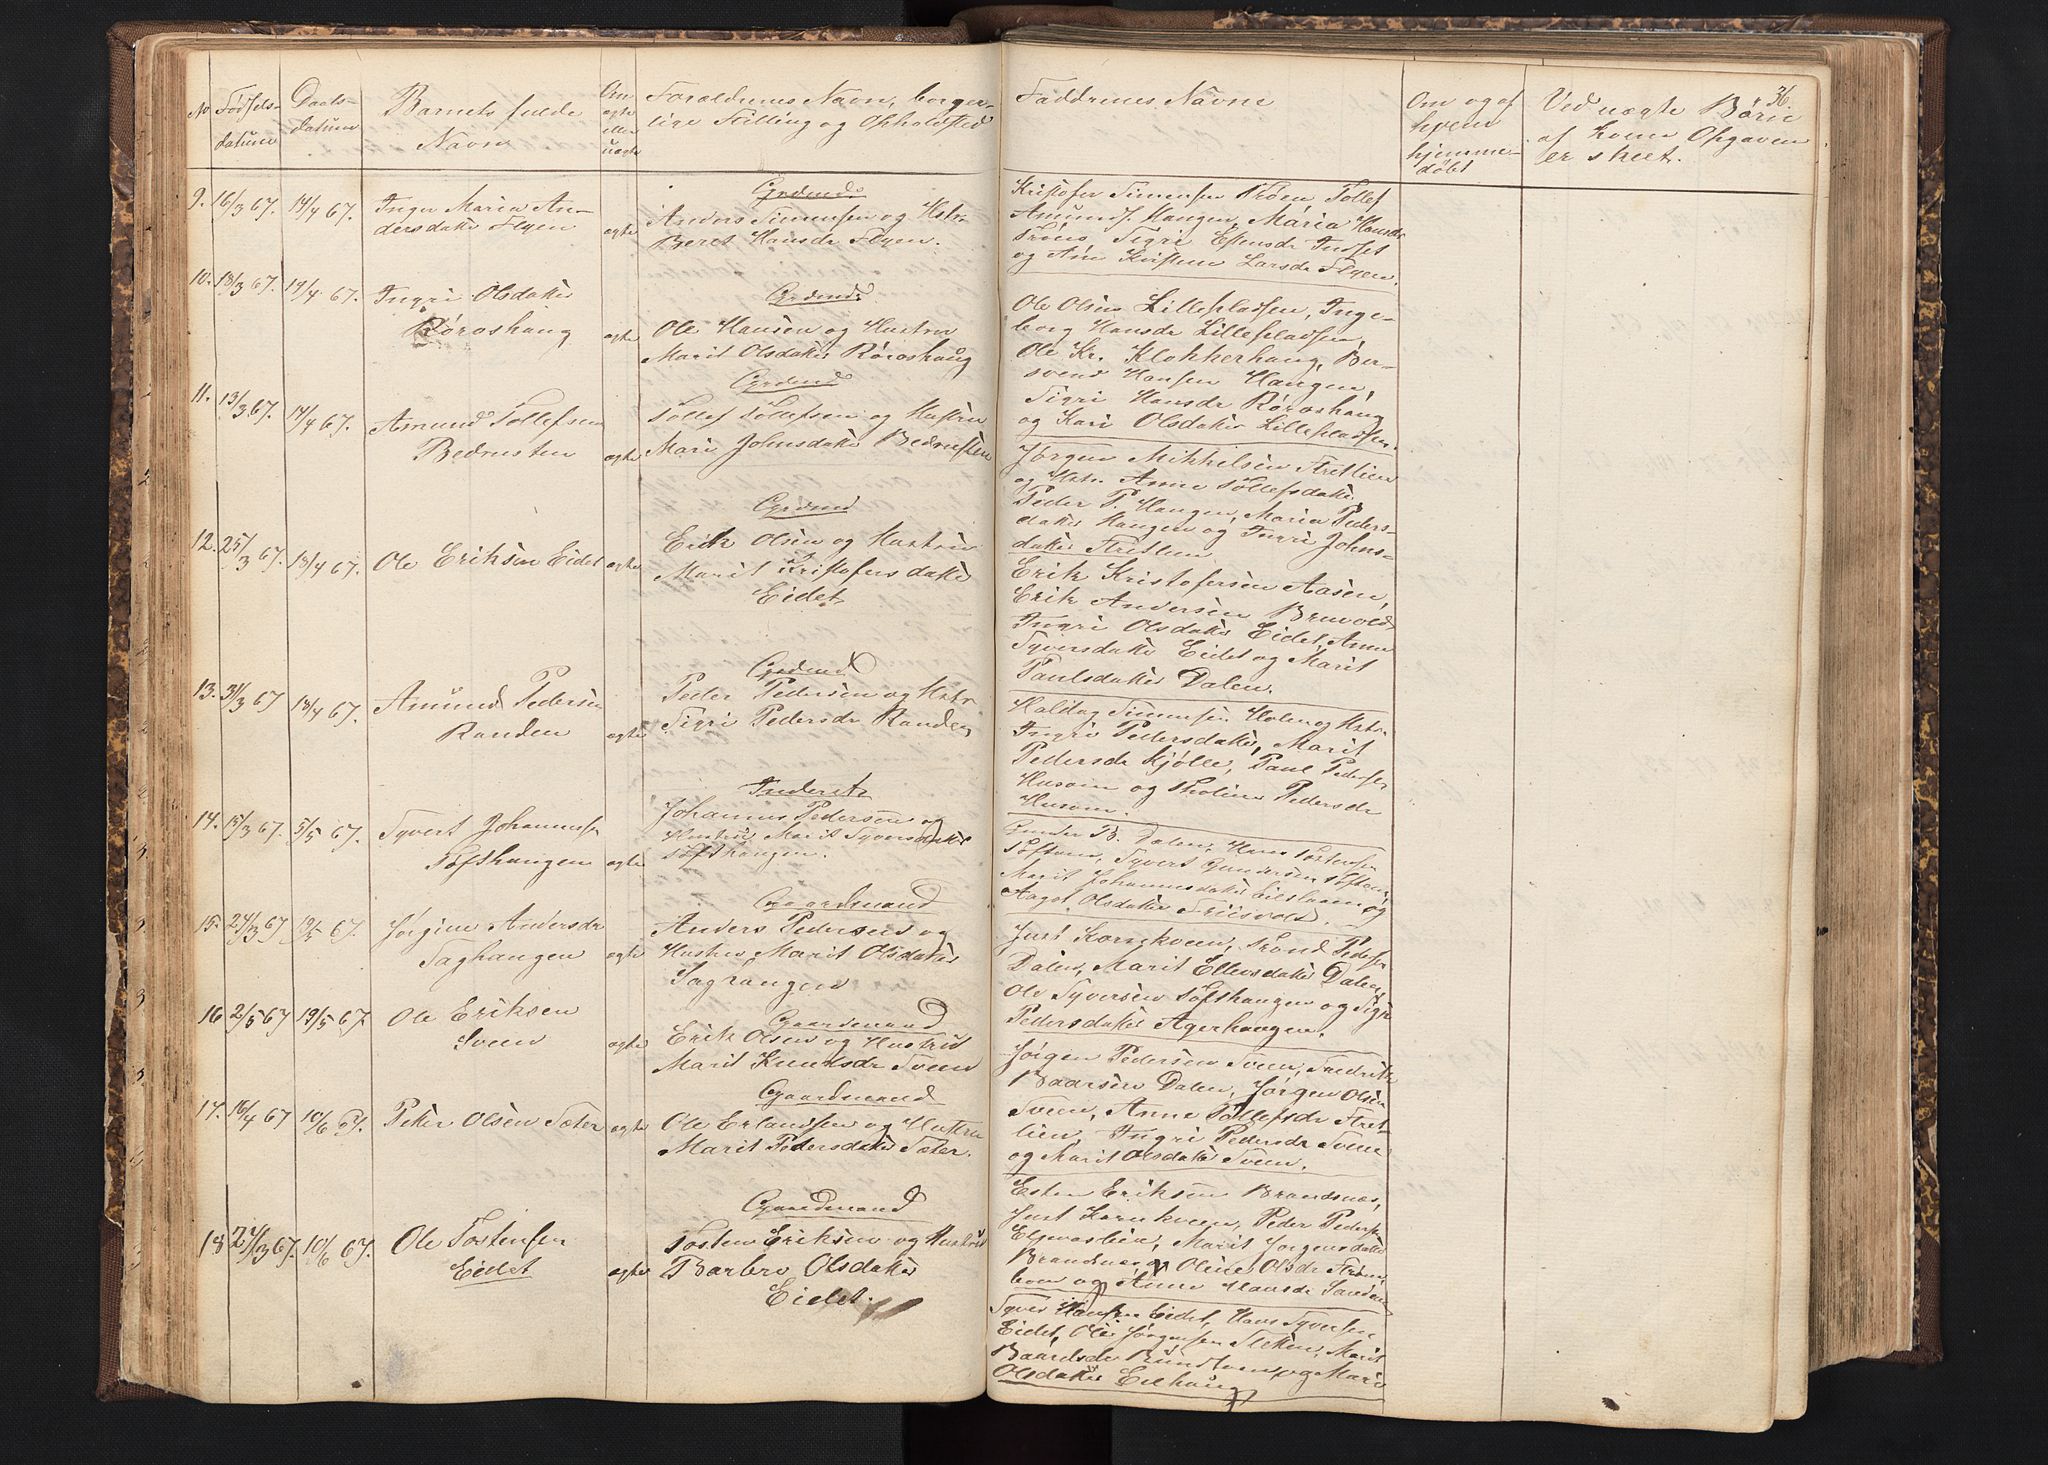 36.
No
Fødsels-
datum
Daabs-
datum
Barnets fulde
Navn
Om
ægte
eller
uægte
Forældrenes Navn, borger-
lige Stilling og Opholdsted
Faddrenes Navne
Om og af
hvem
hjemme-
døbt
Ved uægte Børn
af hvem Opgaven
er skeet.
9. 16/3 67. 14/4 67. Inger Maria An-
dersdatter Flyen
ægte
Grdmd
Anders Simensen og Hstr.
Beret Hansdr Flyen.
Kristofer Simensen Trøen, Tollef
Amunds. Haugen, Maria Hansdr
Trøns, Sigri Estensdr Indset
og Ane Kirstine Larsdr Flyen.
10. 18/3 67. 14/4 67. Ingri Olsdatter
Røroshaug
ægte
Grdmd
Ole Hansen og Hustru
Marit Olsdatter Røroshaug
Ole Olsen Lillepladsen, Inge-
borg Hansdr Lillepladsen,
Ole Kr. Klokkerhaug, Ber-
svend Hansen Haugen,
Sigri Hansdr Røroshaug
og Kari Olsdatter Lillepladsen.
11. 13/3 67. 14/4 67. Amund Tollefsen
Bedrusten
ægte
Grdmd
Tollef Tollefsen og Hustru
Mari Johnsdatter Bedrusten
Jørgen Mikkelsen Stretlien
og Hstr. Anne Tollefsdatter
Peder P. Haugen, Maria Peders-
datter Haugen og Ingri Johns-
datter Stretlien
12. 25/3 67. 18/4 67. Ole Eriksen Eidet
ægte
Grdmd
Erik Olsen og Hustru
Marit Kristofersdatter
Eidet
Erik Kristofersen Aasen,
Erik Andersen Bruvold
Ingri Olsdatter Eidet, Anne
Syversdatter Eidet og Marit
Paulsdatter Dalen.
13. 31/3 67 18/4 67. Amund Pedersen
Randen
ægte
Grdmd
Peder Pedersen og Hstr.
Sigri Pedersdr Randen
Haldag Simensen Holen og Hstr.
Ingri Pedersdatter, Marit
Pedersdr Kjølle, Paul Pedersen
Husom og Pedersdr
Husom.
14. 15/3 67. 5/5 67. Syvert Johannesen
Toftshaugen
ægte
Inderst
Johannes Pedersen og
Hustru Marit Syversdatter
Toftshaugen.
Gunder B. Dalen, Hans Tostensen
Toften, Syvert Gundersen Toften,
Marit Johannesdatter og
Aagot Olsdatter Friisvold.
15. 24/3 67 19/5 67. Jørgine Andersdr
Saghaugen
ægte
Gaardmand
Anders Pedersen og
Hustru Marit Olsdatter
Saghaugen
Just Kornkveen, Trond Pedersen
Dalen, Marit Ellevsdatter Dalen,
Ole Syversen Toftshaugen og Sigri
Pedersdatter Agerhaugen.
16 2/5 67 19/5 67. Ole Eriksen
Sveen
ægte
Gaardmand
Erik Olsen og Hustru
Marit Knutsdr Sveen
Jørgen Pedersen Sveen, Fredrik
Baarsen Dalen, Jørgen Olsen
Sveen, Anne Tollefsdr Stret-
lien, Ingri Pedersdr Sveen
og Marit Olsdatter Sveen.
17. 16/4 67 10/6 67. Peter Olsen Sæter
ægte
Gaardmand
Ole Erlandsen og Hustru
Marit Pedersdatter Sæter.
Esten Eriksen Brandsnæs,
Just Kornkveen, Peder Pedersen
Elgvaslien, Marit Jørgensdatter
Brandsnæs, Oline Olsdr Strøm-
boen og Anne Hansdr Sanden
18 24/3 67. 10/6 67. Ole Tostensen
Eidet
ægte
Gaardmand
Tosten Eriksen og Hustru
Barbro Olsdatter
Eidet.
Syver Hansen Eidet, Hans Syversen
Eidet, Ole Jørgensen Sletten, Marit
Baardsdr Brundtuen, og Mari
Olsdatter Eidhaug